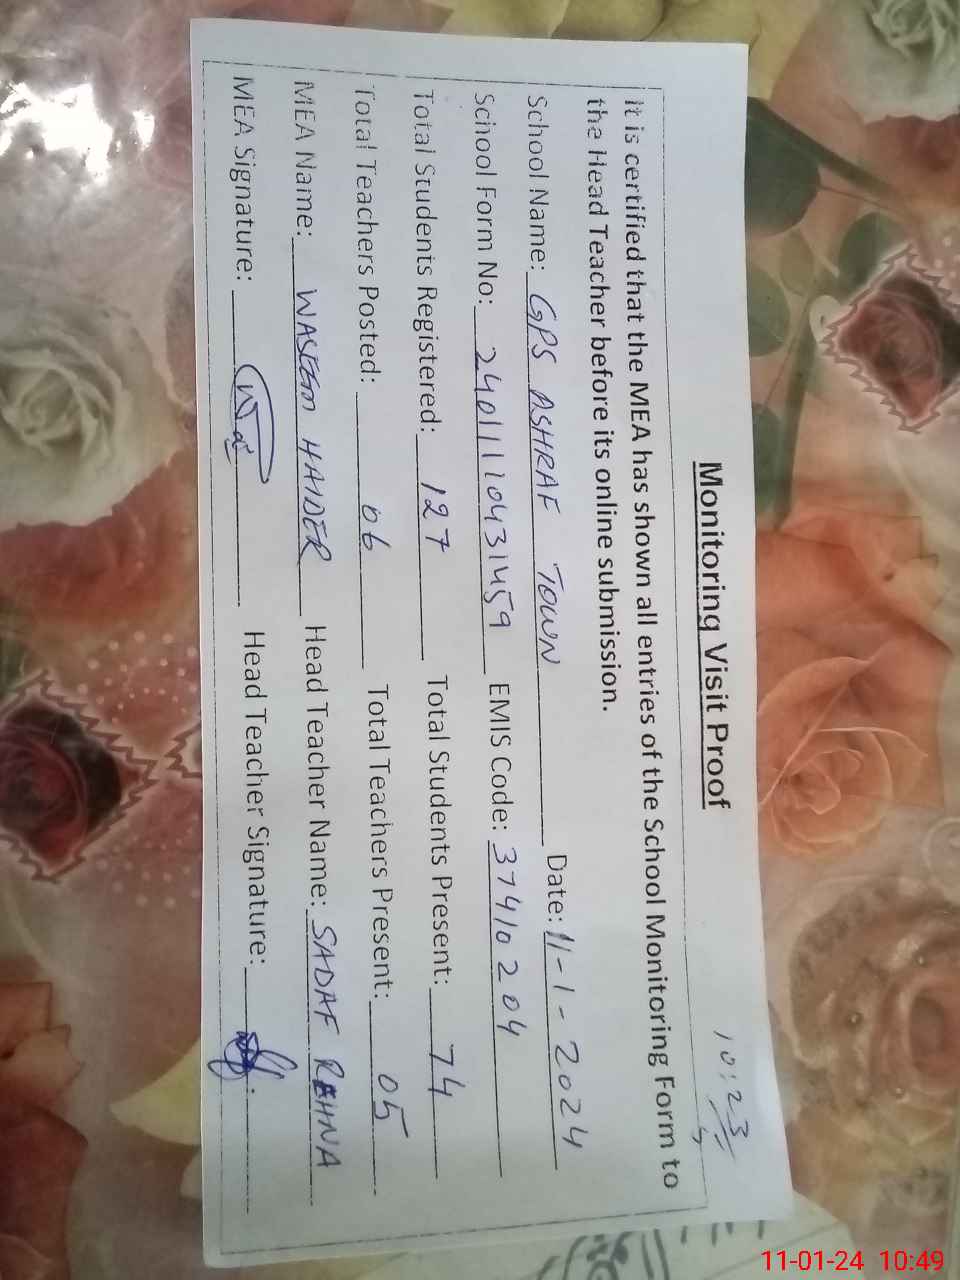 10:23
Monitoring Visit Proof
It is certified that the MEA has shown all entries of the School Monitoring Form to
the Head Teacher before its online submission.
School Name: GPS ASHRAF TOWN Date: 11-1-2024
School Form No: 2401110431459 EMIS Code: 37410204
Total Students Registered: 127 Total Students Present: 74
Total Teachers Posted: 06 Total Teachers Present: 05
MEA Name: WASEEM HAIDER Head Teacher Name: SADAF REHNA
MEA Signature: Head Teacher Signature:
11-01-24 10:49